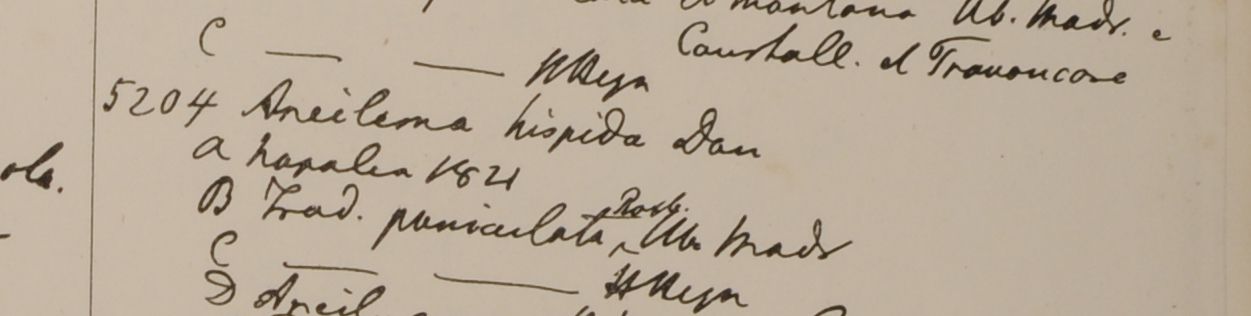 montana Hb. Madr. e
C — — HHeyn
Courtall. et Travancore
5204 Aneilema hispida Don
a Napalea 1821
B Trad. paniculata Roxb. Hb. Madr
C — — HHeyn
ola.
D Aneil